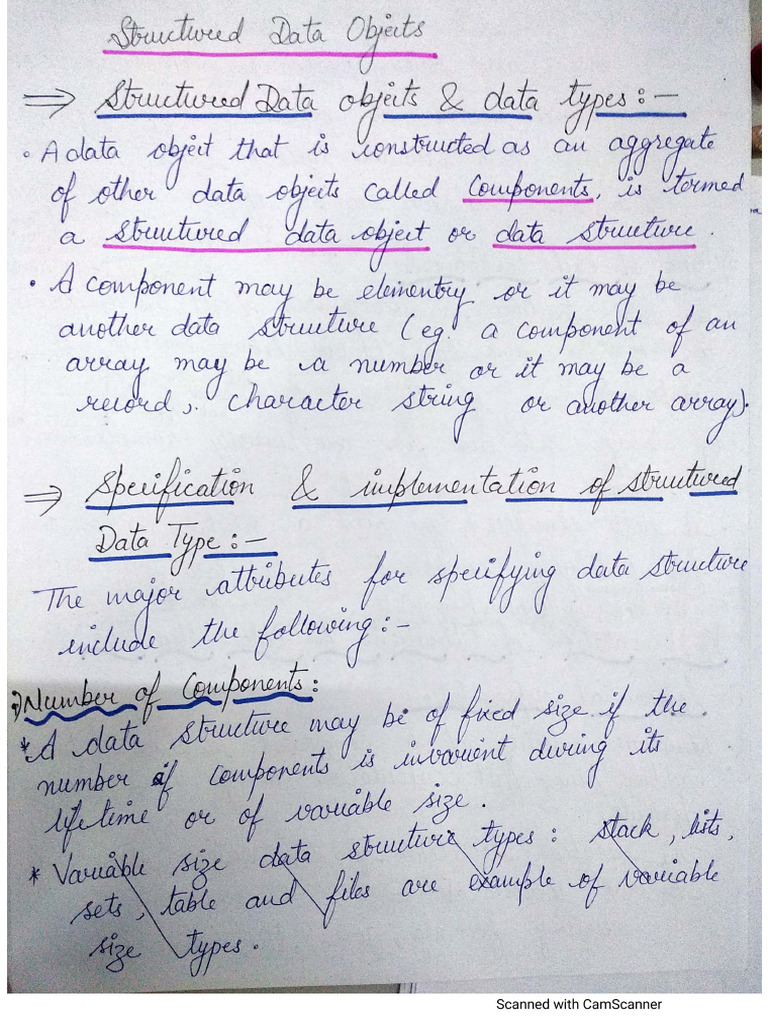 Structured Data Objects
⇒ Structured Data objects & data types:-
• A data object that is constructed as an aggregate
of other data objects called components, is termed
a structured data object or data structure.
• A component may be elementry or it may be
another data structure (eg. a component of an
array may be a number or it may be a
record, character string or another array).
⇒ Specification & implementation of structured
Data Type:-
The major attributes for specifying data structure
include the following:-
i) Number of Components:
* A data structure may be of fixed size if the
number of components is invarient during its
lifetime or of variable size.
* Variable size data structure types: stack, lists,
sets, table and files are example of variable
size types.
Scanned with CamScanner